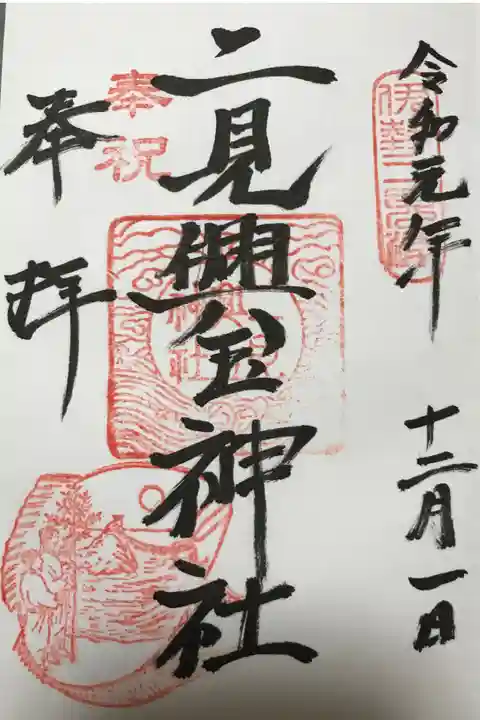 令和元年 十二月一日
二見興玉神社
奉拝
奉祝
伊勢二見浦